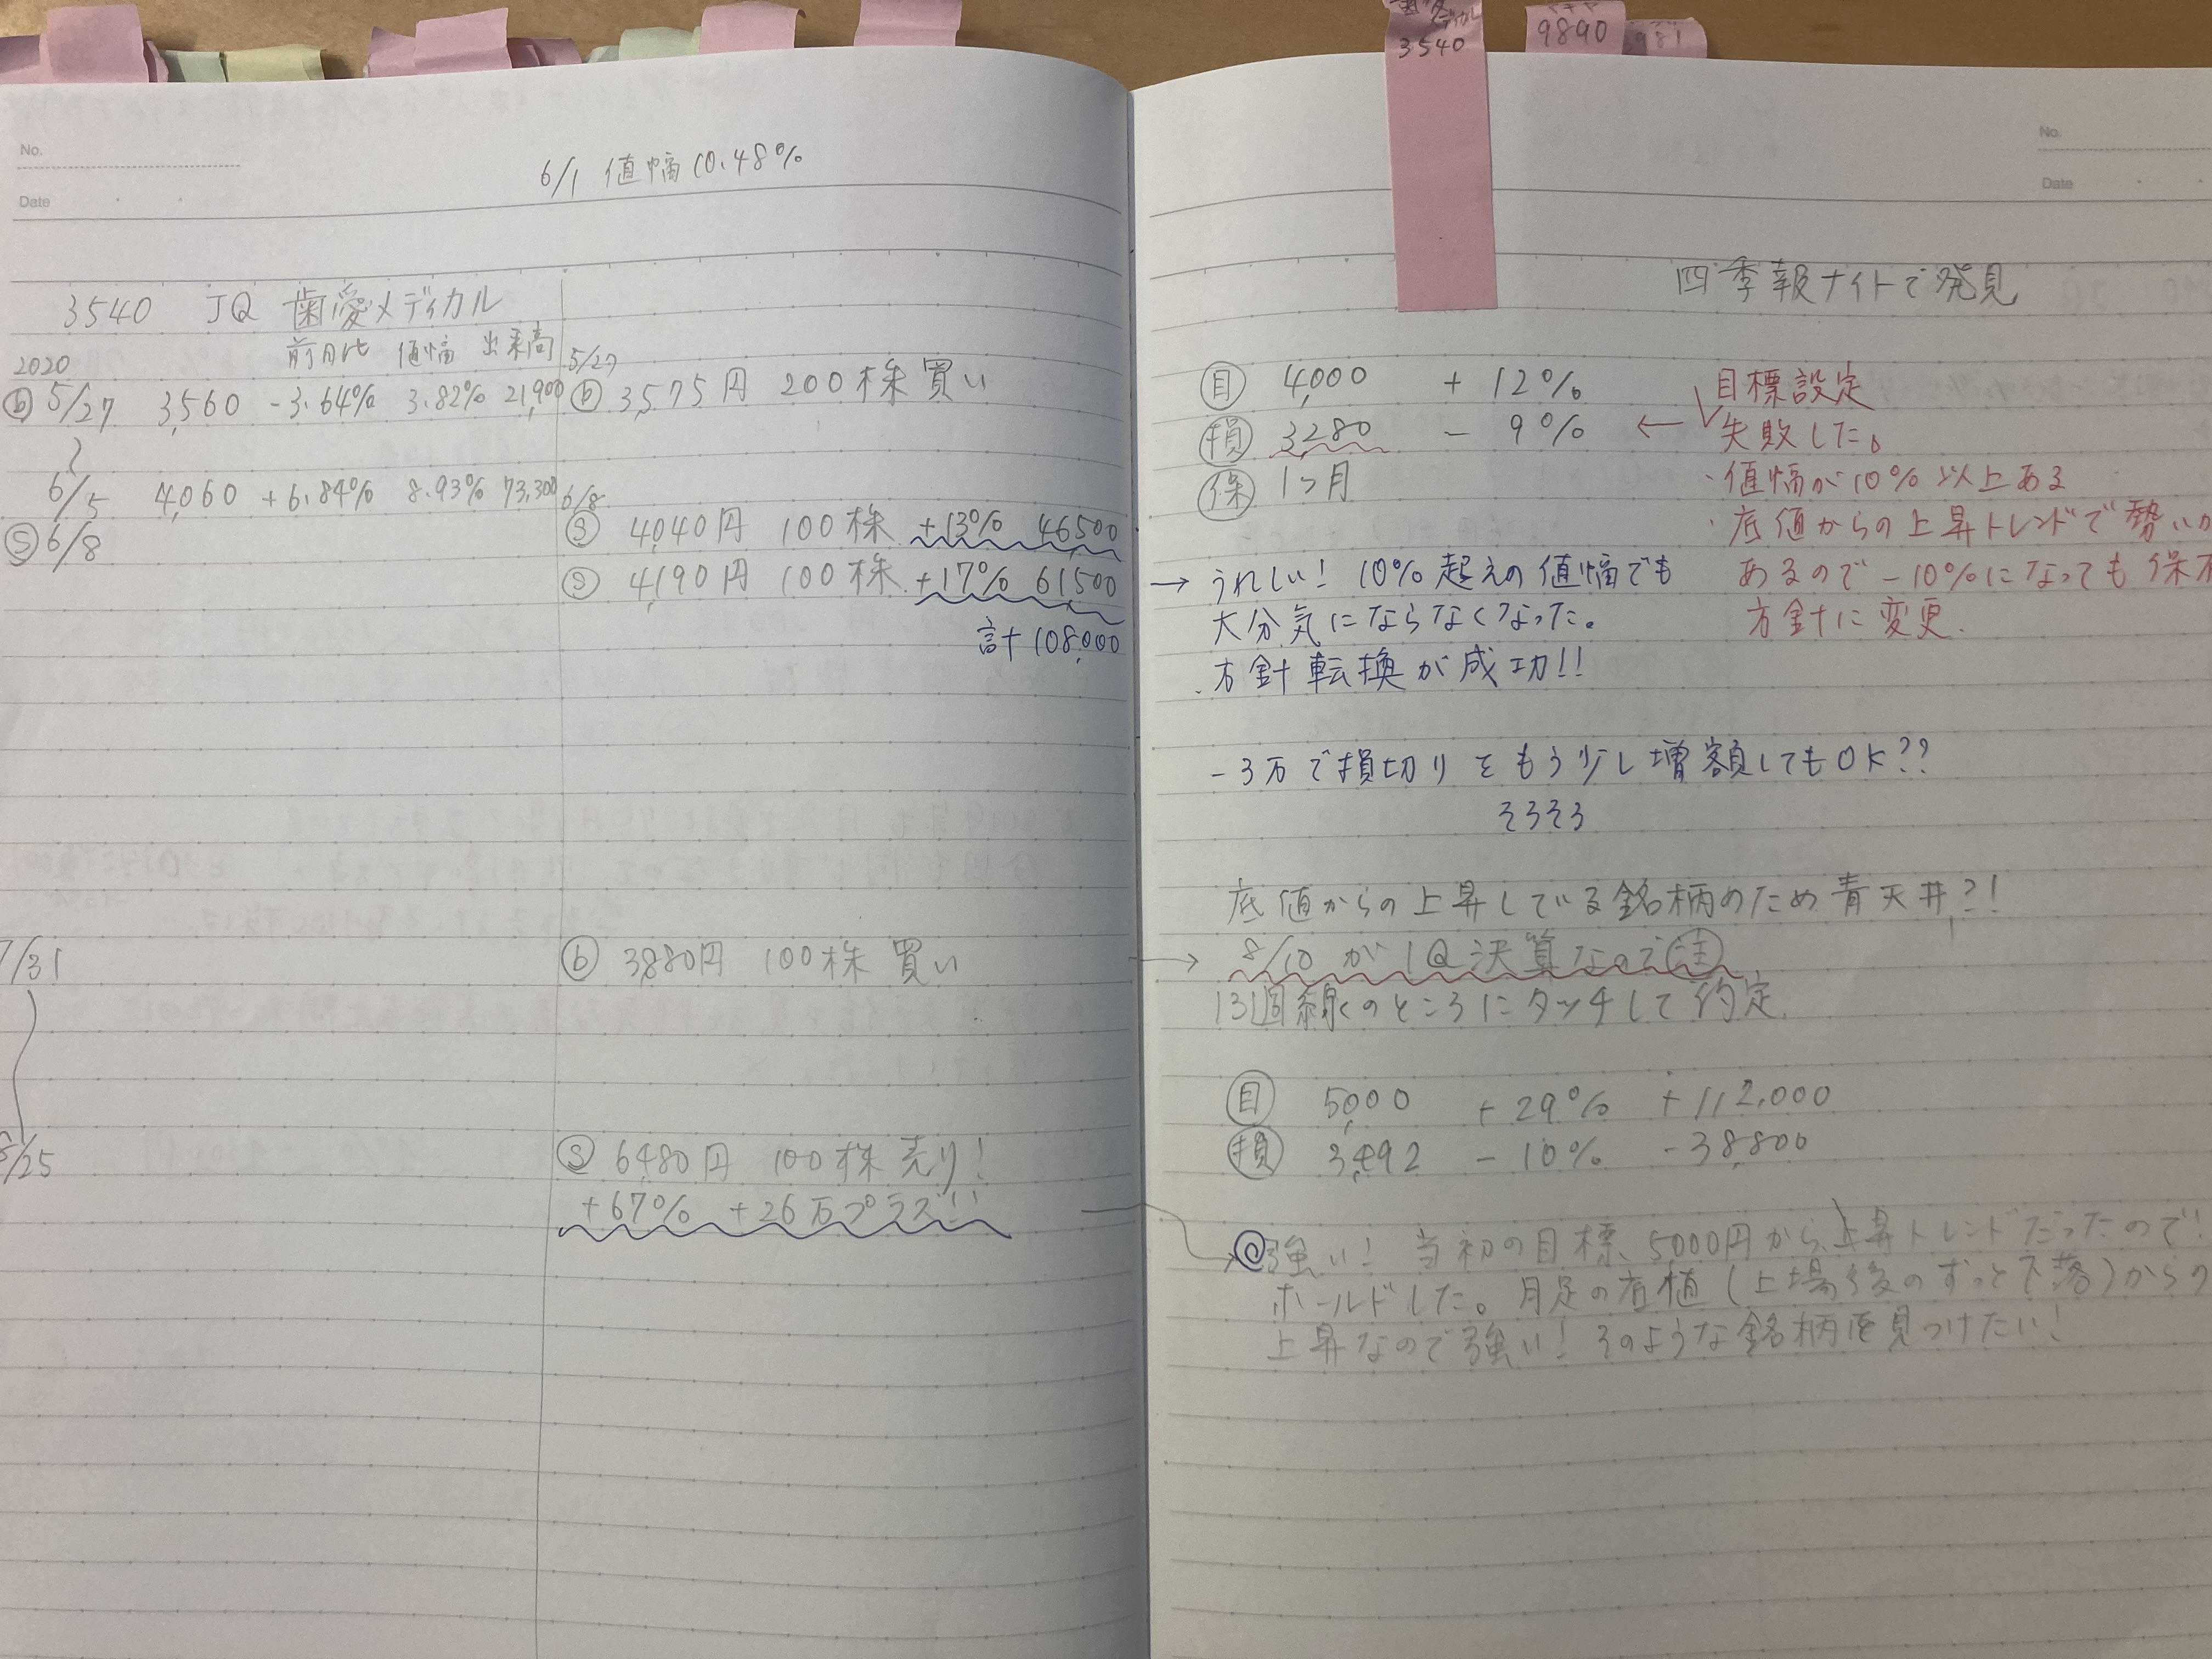 3540
9890
981
No.
Date
6/1 値幅10.48%
3540 JQ 歯愛メディカル
2020 前日比 値幅 出来高
ⓑ 5/27 3,560 -3.64% 3.82% 21,900
6/5 4,060 +6.84% 8.93% 73,300
Ⓢ 6/8
5/27
ⓑ 3,575円 200株買い
6/8
Ⓢ 4,040円 100株 +13% 46,500
Ⓢ 4,190円 100株 +17% 61,500
計 108,000
7/31 ⓑ 3,880円 100株 買い
8/25 Ⓢ 6,480円 100株 売り!
+67% +26万プラス!!
No.
Date
四季報ナイトで発見
目 4,000 +12%
損 3,280 - 9% ←
保 1ヶ月
目標設定
失敗した。
・値幅が10%以上ある
・底値からの上昇トレンドで勢いが
あるので-10%になっても保有
方針に変更.
→ うれしい! 10%超えの値幅でも
大分気にならなくなった。
方針転換が成功!!
-3万で損切りをもう少し増額してもOK??
そろそろ
底値からの上昇している銘柄のため青天井?!
→ 8/10が1Q決算なので注
13週線のところにタッチして約定
目 5,000 +29% +112,000
損 3,492 -10% -38,800
強い! 当初の目標、5,000円から上昇トレンドだったので!
ホールドした。月足の底値(上場後のずっと下落)からの
上昇なので強い! そのような銘柄を見つけたい!